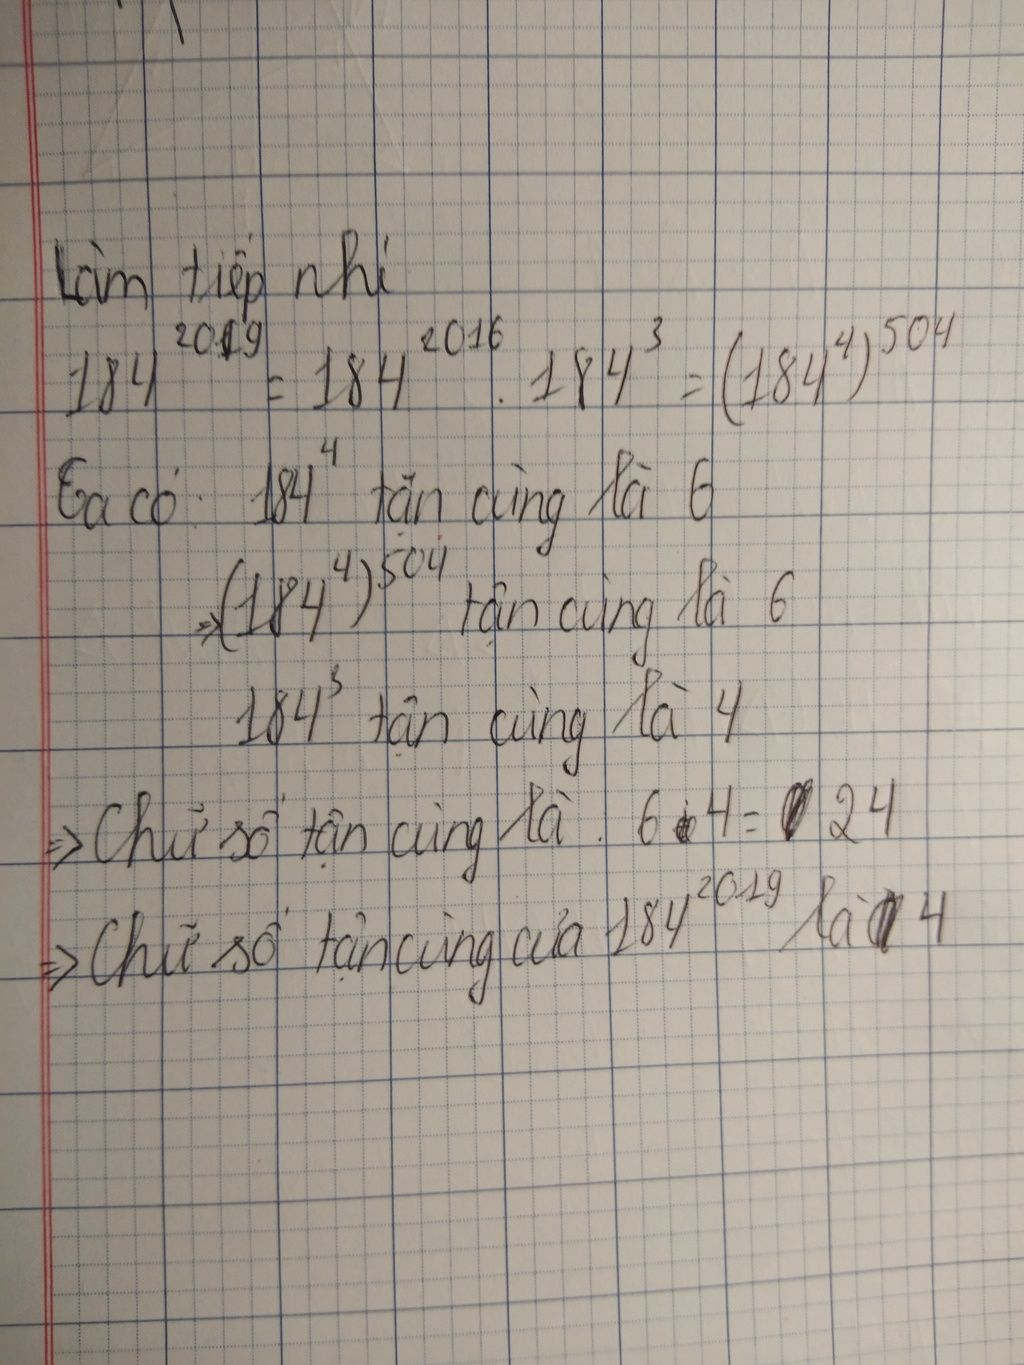 Làm tiếp nhỉ
184^2019 = 184^2016 . 184^3 = (184^4)^504
Ta có: 184^4 tận cùng là 6
⇒ (184^4)^504 tận cùng là 6
184^3 tận cùng là 4
⇒ Chữ số tận cùng là: 6.4 = 24
⇒ Chữ số tận cùng của 184^2019 là 4